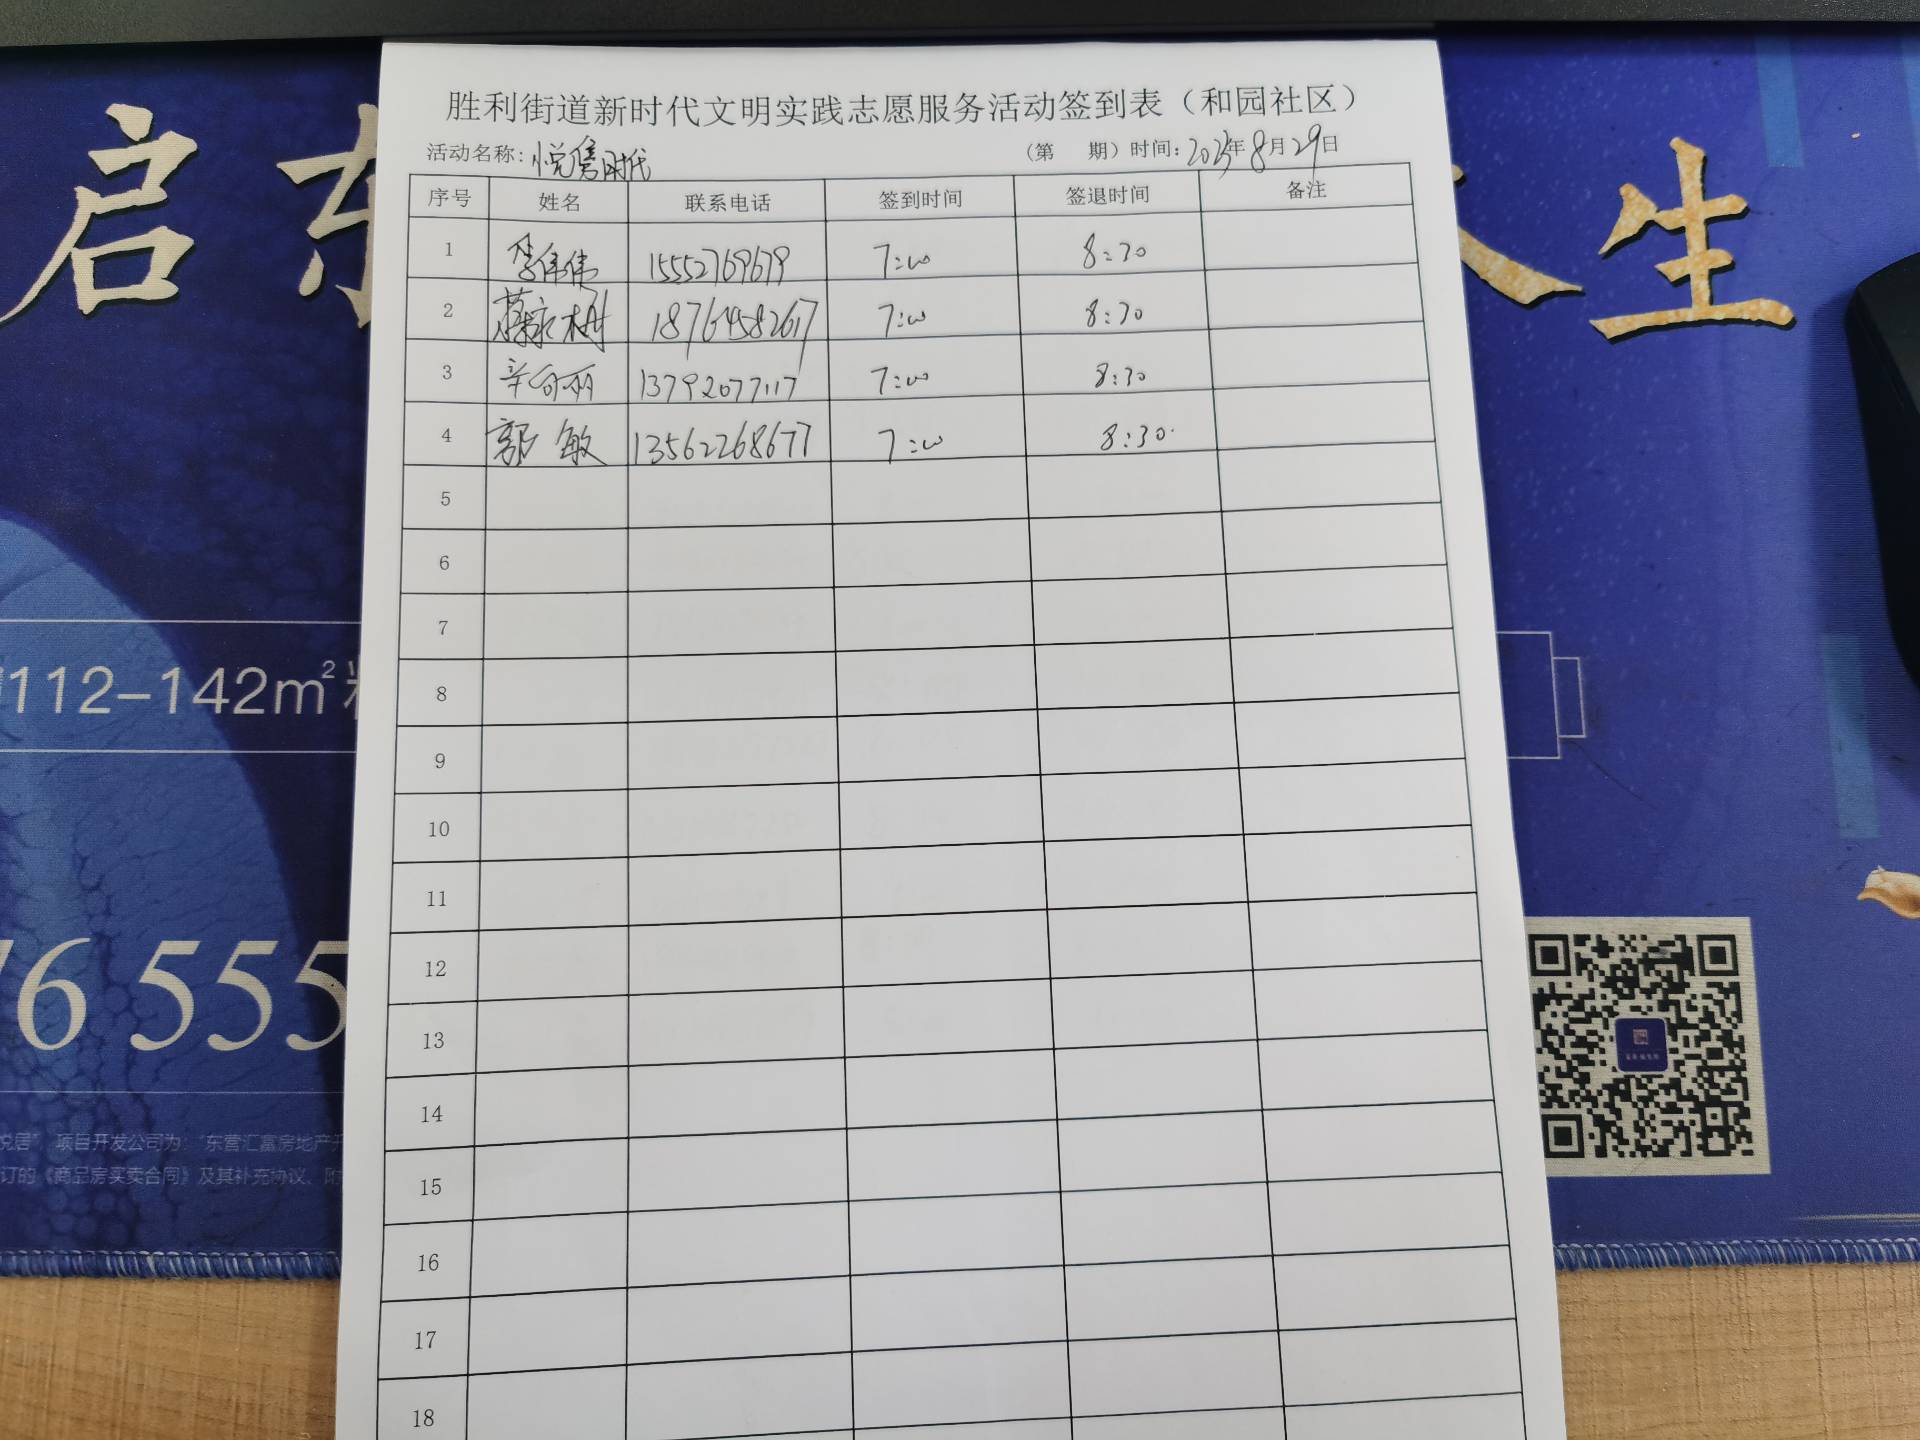 胜利街道新时代文明实践志愿服务活动签到表（和园社区）
活动名称: 悦 时代 （第 期）时间: 2023年8月29日
序号 姓名 联系电话 签到时间 签退时间 备注
1 李伟伟 15552769679 7:00 8:30
2 18764582617 7:00 8:30
3 辛 丽 13792077117 7:00 8:30
4 郭敏 13562268677 7:00 8:30
5
6
7
8
9
10
11
12
13
14
15
16
17
18
启
生
112-142m²
6 555
悦居”，项目开发公司为：“东营汇富房地产
订的《商品房买卖合同》及其补充协议、附